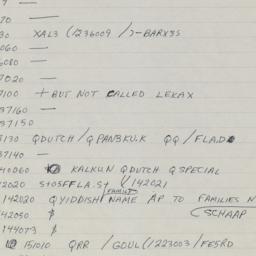 9 —
70 —
30 XAL3 (1236009 /J-BARX3S
060 —
6080 —
7020 —
7100 + BUT NOT CALLED LEKAX
37160 —
37150
8130 QDUTCH/QPAN3KU.K QQ/FLAD
37140 —
40060 KALKUN QDUTCH QSPECIAL
42020 S+OSFFLA.S+ (/142021
142020 QYIDDISH FAMILY NAME AP TO FAMILIES N
142050 $ (SCHAAP
144073 $
151010 QRR /GOUL(1223003/FESRD